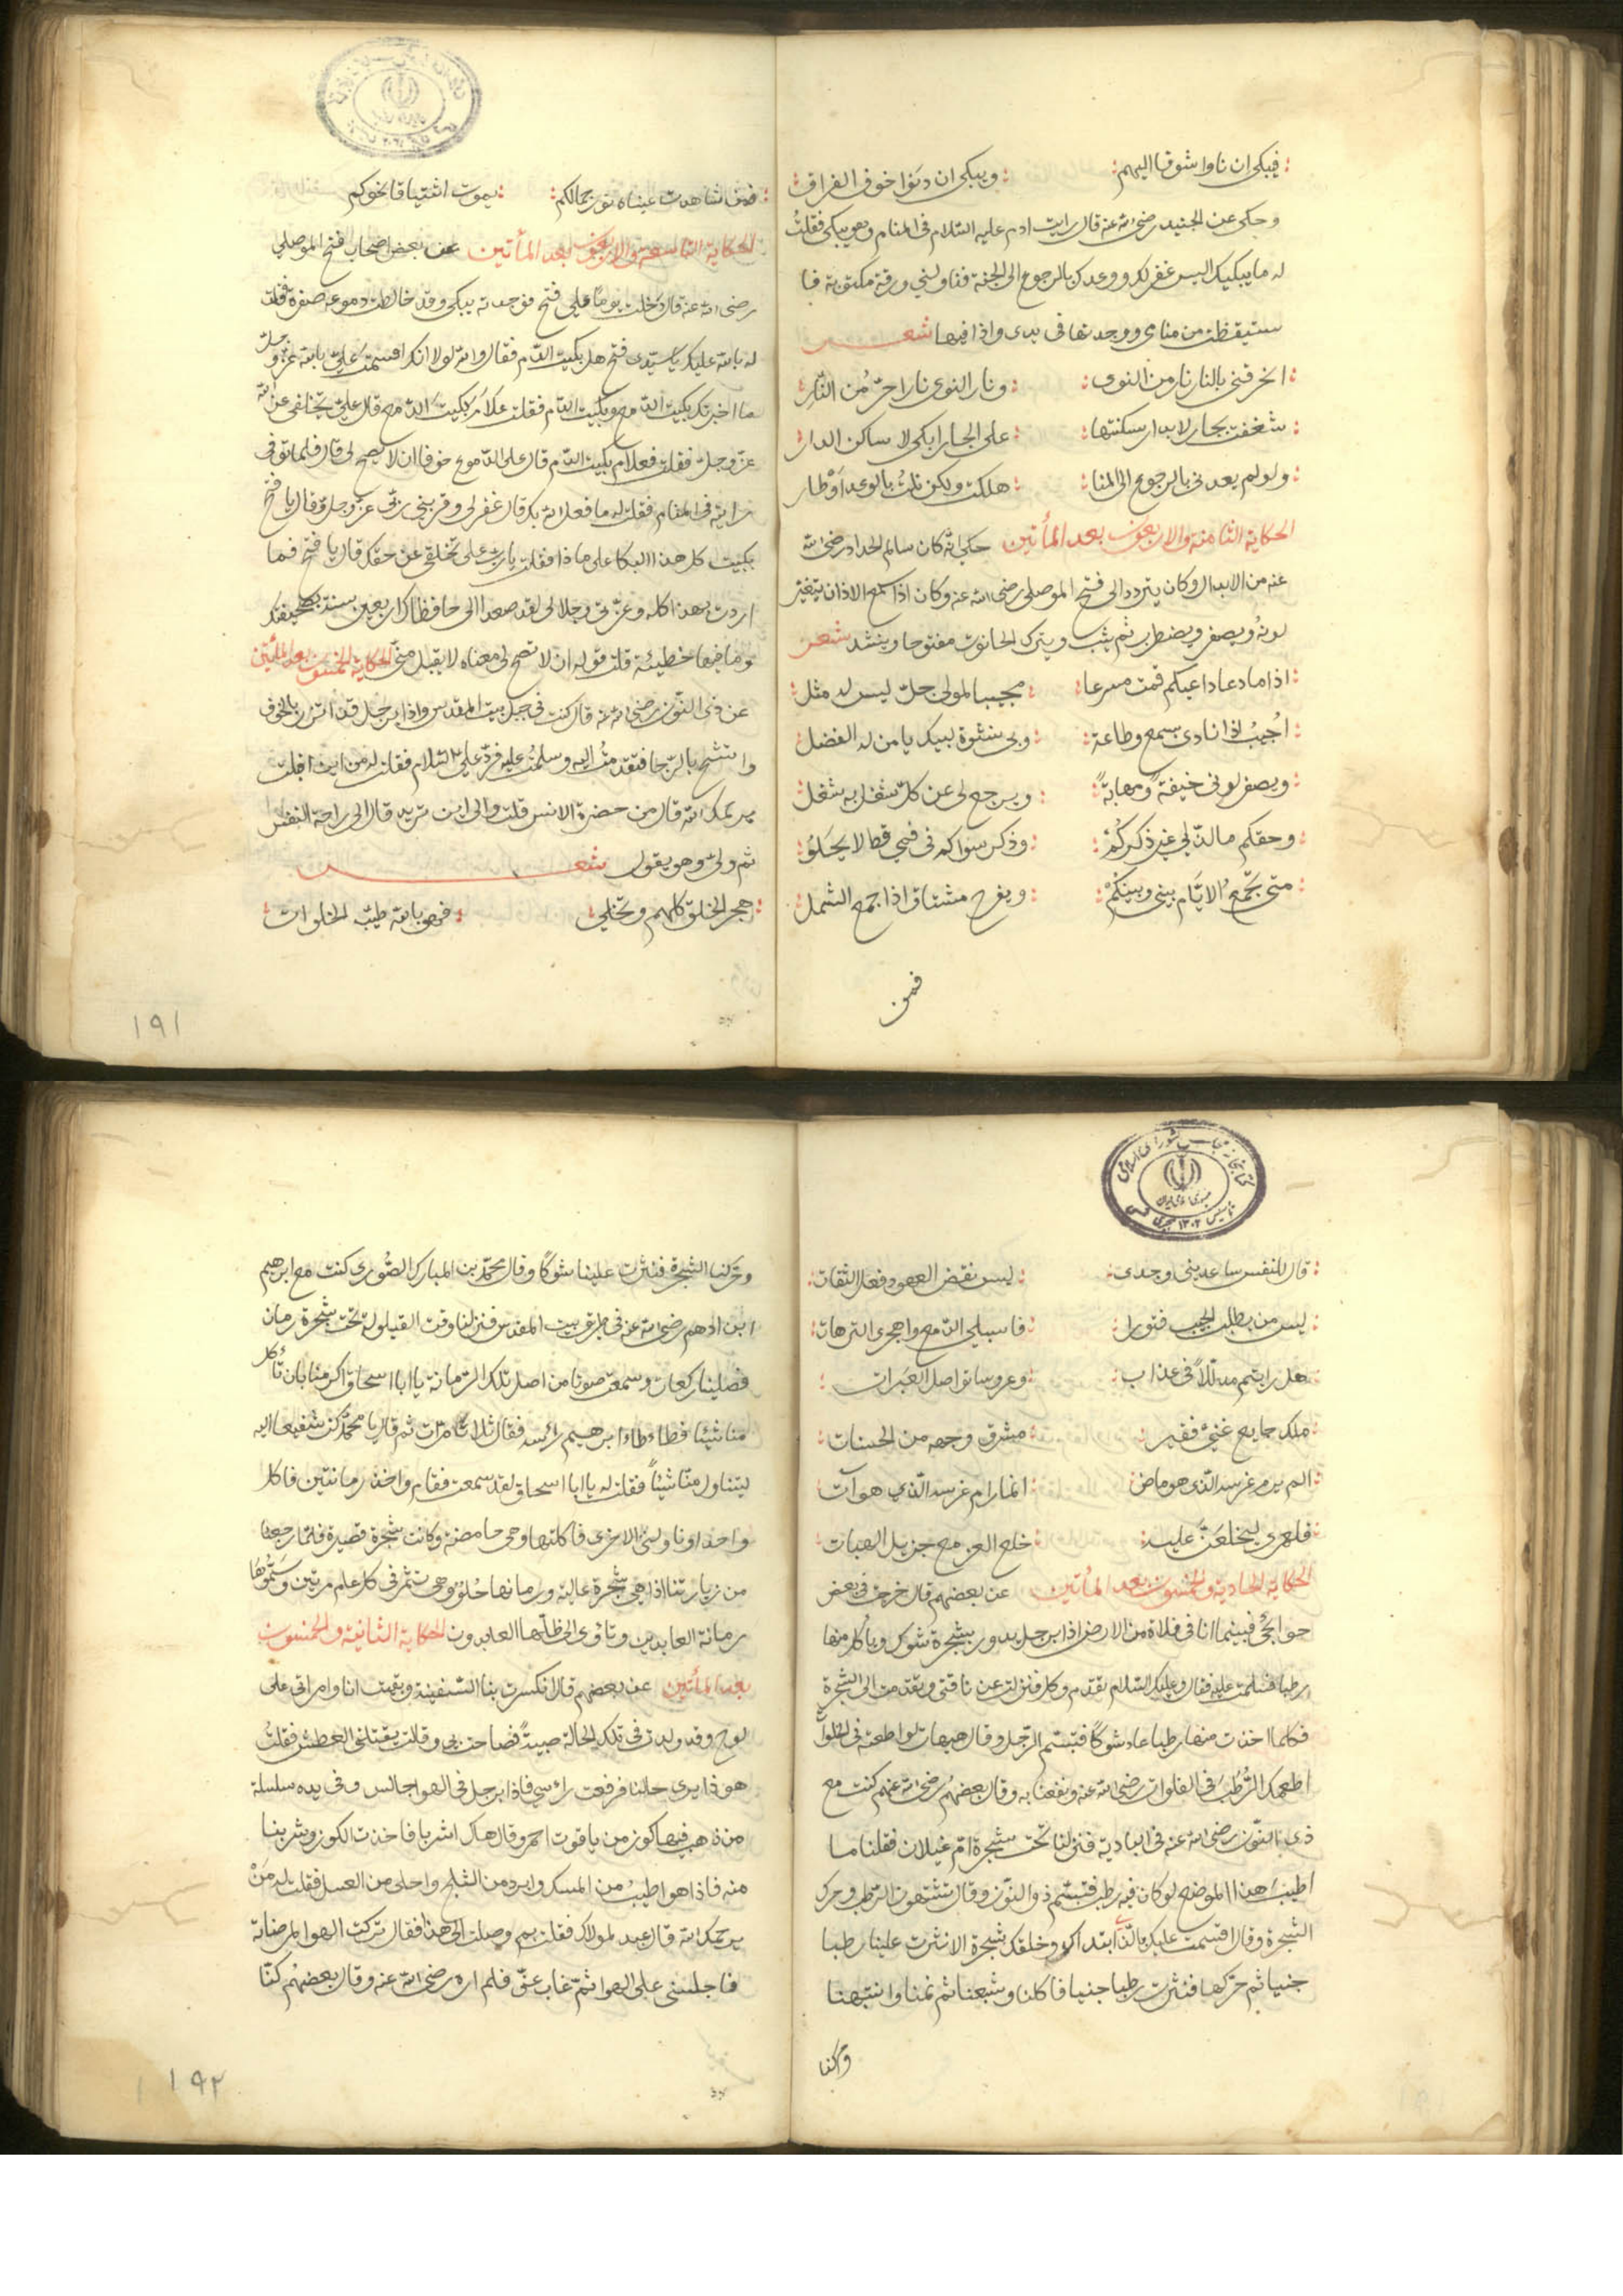 فيبكى ان ناوا شوقا اليهم ويبكى ان دنوا خوف الفراق
وحكى عن الجنيد رضى الله عنه قال رايت ادم عليه السلام فى المنام وهو يبكى فقلت
له ما يبكيك اليس غفر لك ووعدك بالرجوع الى الجنة فناولني ورقة مكتوبة فا
ستيقظت من منامى ووجدتها فى يدى واذا فيها شعر
اتحرقنى بالنار نار من النوى ونار النوى نارا حرّ من النّار
شغفت بجار لا بدار سكنتها على الجار ابكى لا ساكن الدار
ولو لم يعدنى بالرجوع الى المنا هلكت ولكن نلت بالوعد اوطار
الحكاية الثامنة والاربعون بعد المأتين حكى انه كان سالم الحداد رضى الله
عنه من الابدال وكان يتردد الى فتح الموصلى رضى الله عنه وكان اذا سمع الاذان يتغير
لونه ويصفر ويضطرب ثم يثب ويترك الحانوت مفتوحا وينشد شعر
اذا ما دعا داعيكم قمت مسرعا مجيبا لمولى جلّ ليس له مثل
اجيب اذا نادى بسمع وطاعة وبى نشوة لبيك يا من له الفضل
ويصفر لونى خيفة ومهابة ويرجع لى عن كل شغل به شغل
وحقكم ما لذّ لى غير ذكركم وذكر سواكم فى فمي قط لا يحلو
متى تجمع الايّام بينى وبينكم ويفرح مشتاق اذا جمع الشمل
فمن
فمن شاهدت عيناه نور جمالكم يموت اشتياقا نحوكم
الحكاية التاسعة والاربعون بعد المأتين عن بعض اصحاب فتح الموصلي
رضى الله عنه قال دخلت يوما على فتح فوجدته يبكى وقد خالطت دموعه صفرة فقلت
له بالله عليك يا سيدى فتح هل بكيت الدّم فقال والله لولا انك اقسمت علىّ بالله عزّ وجلّ
ما اخبرتك بكيت الدّمع وبكيت الدّم فقلت علام بكيت الدّمع قال على تخلفى عن الله
عزّ وجلّ فقلت فعلام بكيت الدّم قال على الدّموع خوفا ان لا يصح لى قال فلما توفى
رايته فى المنام فقلت له ما فعل الله بك قال غفر لى وقربنى ربى عزّ وجلّ وقال يا فتح
بكيت كل هذا البكا على ماذا فقلت يا رب على تخلفى عن حقك قال يا فتح فما
اردت بهذا كله وعزتى وجلالى لقد صعد الى حافظاك اربعين سنة بصحيفتك
وما فيها خطيئة قلت قوله ان لا تصح لى معناه لا يقبل منى الحكاية الخمسون بعد المأتين
عن ذى النون رضى الله عنه قال كنت فى جبل بيت المقدس واذا برجل قد اتزر بالخوف
واتشح بالرّجا فتقدمت اليه وسلمت عليه فردّ علىّ السلام فقلت له من اين اقبلت
يرحمك الله قال من حضرة الانس قلت والى اين تريد قال الى راحة النفس
ثم ولّى وهو يقول شعر
هجر الخلق كلهم وتخلى فهو بالله طيّب الخلوات
191
قال للنفس ساعدينى وجدى ليس نقض العهود فعل الثقات
ليس من يطلب الحبيب فتورا فاسبلي الدّمع واهجرى الترهات
هل رايتم مدللا فى عذاب وعروسا تواصل العبرات
ملك جايع غنيّ فقير مشرق وجهه من الحسنات
الم يرم غرسه الّذى هو ماض انما رام غرسه الّذي هو آت
فلعمرى ليخلعنّ عليه خلع العز مع جزيل الهبات
الحكاية الحادية والخمسون بعد المأتين عن بعضهم قال خرجت فى بعض
حوائجى فبينما انا فى فلاة من الارض اذا برجل يدور بشجرة شوك وياكل منها
رطبا فسلمت عليه فقال وعليك السّلام تقدم وكل فنزلت عن ناقتى وتقدمت الى الشجرة
فكلما اخذت منها رطبا عاد شوكا فتبسّم الرّجل وقال هيهات لو اطعته فى الخلوات
اطعمك الرّطب فى الفلوات رضى الله عنه ونفعنا به وقال بعضهم رضى الله عنهم كنت مع
ذى النّون رضى الله عنه فى البادية فنزلنا تحت شجرة امّ غيلان فقلنا ما
اطيب هذا الموضع لو كان فيه رطب فتبسّم ذو النّون وقال تشتهون الرّطب وحرك
الشجرة وقال اقسمت عليك بالّذى ابتداك وخلقك شجرة الا نثرت علينا رطبا
جنيا ثم حرّكها فنثرت رطبا جنيا فاكلنا وشبعنا ثم نمنا وانتبهنا
وحركنا
وحركنا الشجرة فنثرت علينا شوكا وقال محمّد بن المبارك الصّورى كنت مع ابرهيم
ابن ادهم رضى الله عنه فى طريق بيت المقدس فنزلنا وقت القيلولة تحت شجرة رمان
فصلينا ركعات وسمعت صوتا من اصل تلك الرّمانة يا ابا اسحاق اكرمنا بان تأكل
منا شيئا فطاطا ابرهيم رأسه فقال ثلاث مرّات ثم قال يا محمّد كن شفيعا اليه
ليتناول منّا شيئا فقلت له يا ابا اسحاق لقد سمعت فقام واخذ رمانتين فاكل
واحدا وناولنى الاخرى فاكلتها وهى حامضة وكانت شجرة قصيرة فلمّا رجعنا
من زيارتنا اذا هى شجرة عالية ورمانها حلو وهى تثمر فى كل عام مرّتين وسمّوها
رمانة العابدين وتاوى الى ظلّها العابدون الحكاية الثانية والخمسون
بعد المأتين عن بعضهم قال انكسرت بنا السّفينة وبقيت انا وامراتى على
لوح وقد ولدت فى تلك الحالة صبيّة فصاحت بى وقالت يقتلنى العطش فقلت
هو ذا يرى حالنا فرفعت رأسي فاذا برجل فى الهوا جالس وفى يده سلسلة
من ذهب فيها كوز من ياقوت احمر وقال هاك اشربا فاخذت الكوز وشربنا
منه فاذا هو اطيب من المسك وابرد من الثلج واحلى من العسل فقلت له من
يرحمك الله قال عبد لمولاك فقلت بم وصلت الى هذا فقال تركت الهوا لمرضاته
فاجلسنى على الهوا ثمّ غاب عنّى فلم اره رضى الله عنه وقال بعضهم كنّا
192